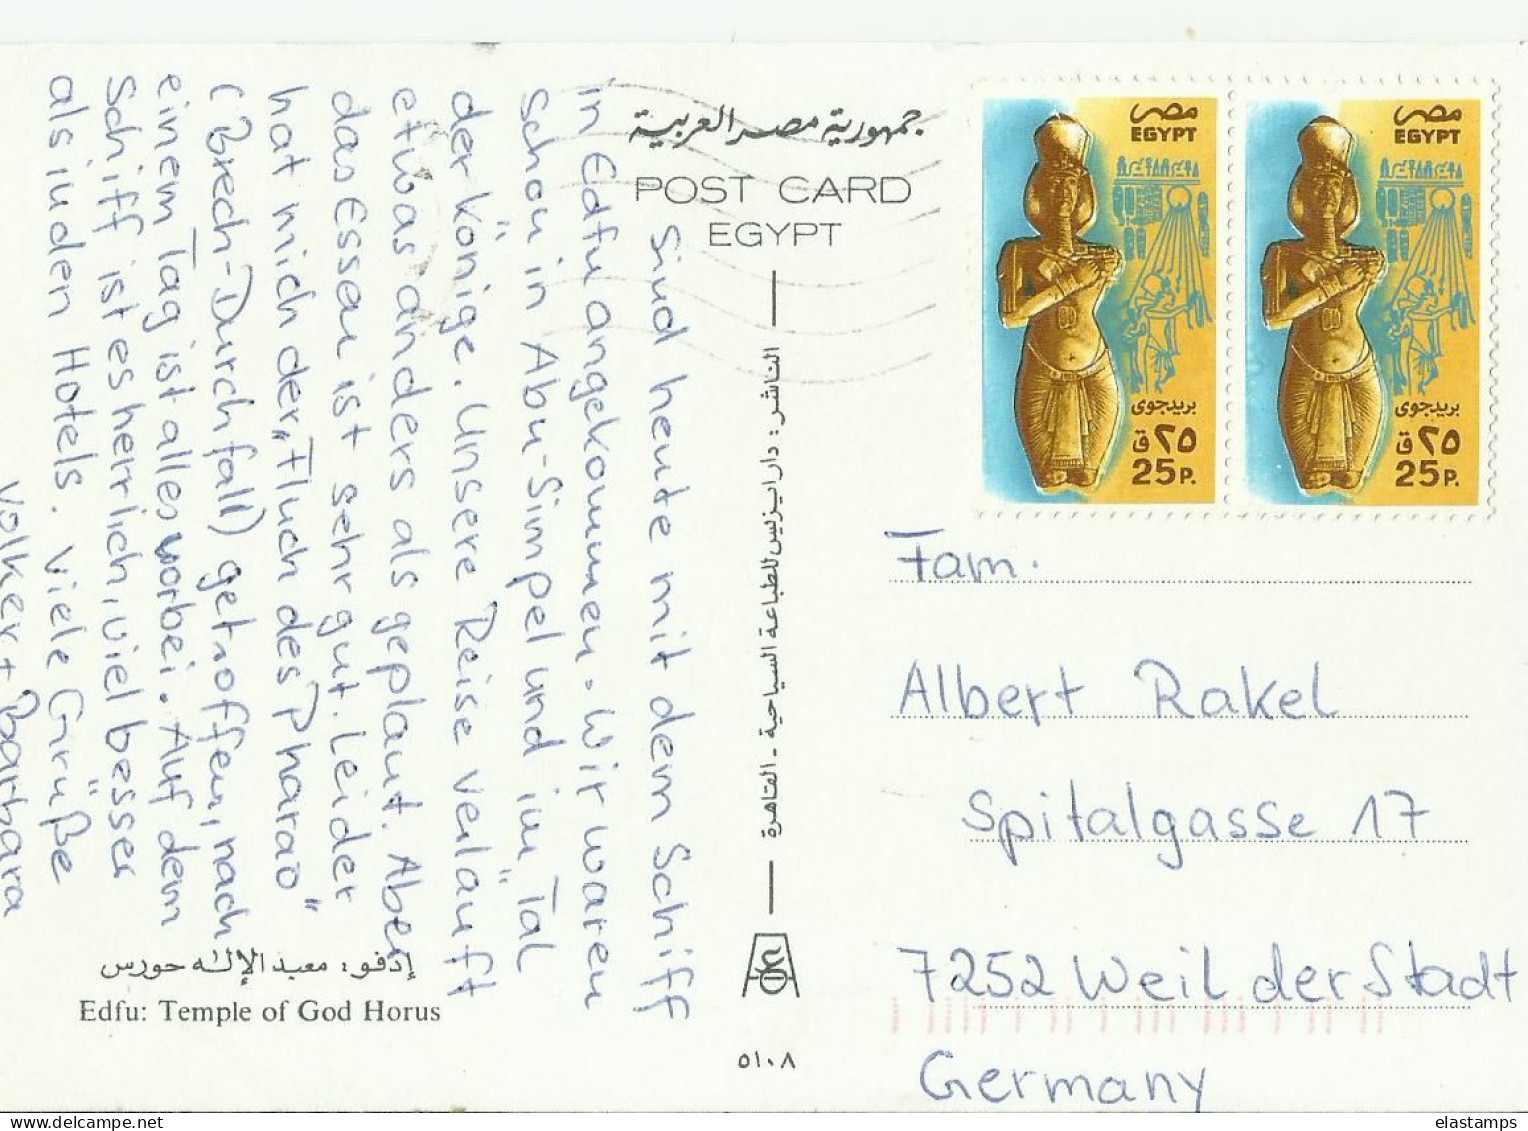 جمهورية مصر العربية
POST CARD
EGYPT
sind heute mit dem Schiff
in Edfu angekommen. Wir waren
schon in Abu-Simpel und im Tal
der Könige. Unsere Reise verläuft
etwas anders als geplant. Aber
das Essen ist sehr gut. Leider
hat mich der „Fluch des Pharao"
(Brech-Durchfall) getroffen, nach
einem Tag ist alles vorbei. Auf dem
Schiff ist es herrlich, viel besser
als in den Hotels. Viele Grüße
Volker + Barbara
إدفو: معبد الإله حورس
Edfu: Temple of God Horus
الناشر: دار ايزيس للطباعة السياحية - القاهرة
٥١٠٨
مصر
EGYPT
بريد جوى
٢٥ ق
25 P.
مصر
EGYPT
بريد جوى
٢٥ ق
25 P.
Fam.
Albert Rakel
Spitalgasse 17
7252 Weil der Stadt
Germany
elastamps